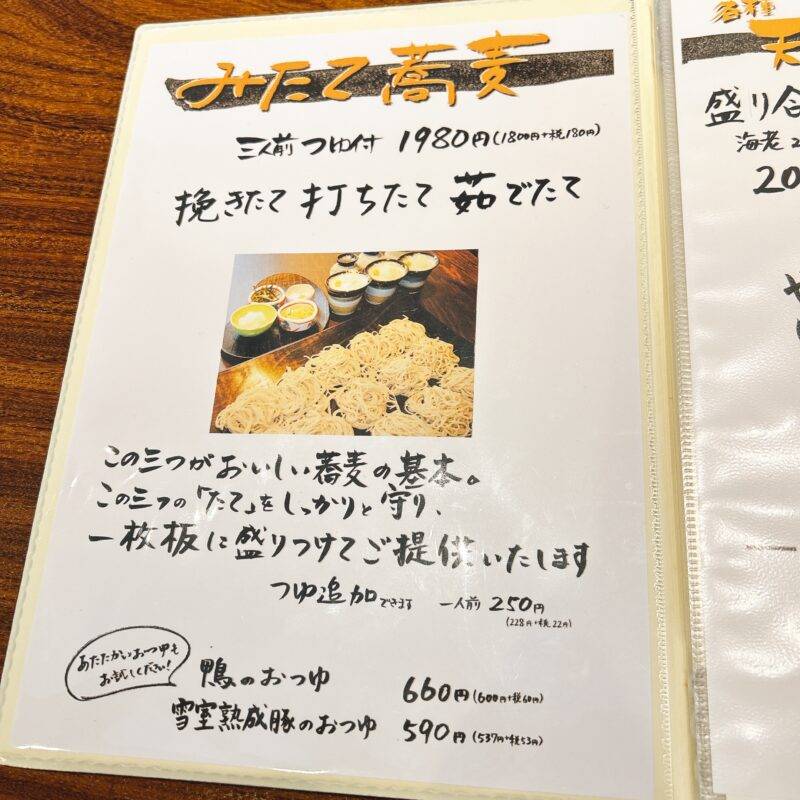 みたて蕎麦
三人前 つゆ付 1980円(1800円+税180円)
挽きたて 打ちたて 茹でたて
この三つがおいしい蕎麦の基本。
この三つの「たて」をしっかりと守り、
一枚板に盛りつけてご提供いたします
つゆ追加できます 一人前 250円
(228円+税22円)
あたたかいおつゆも
お試しください!
鴨のおつゆ 660円(600円+税60円)
雪室熟成豚のおつゆ 590円(537円+税53円)
各種
天
盛り合
海老2
20